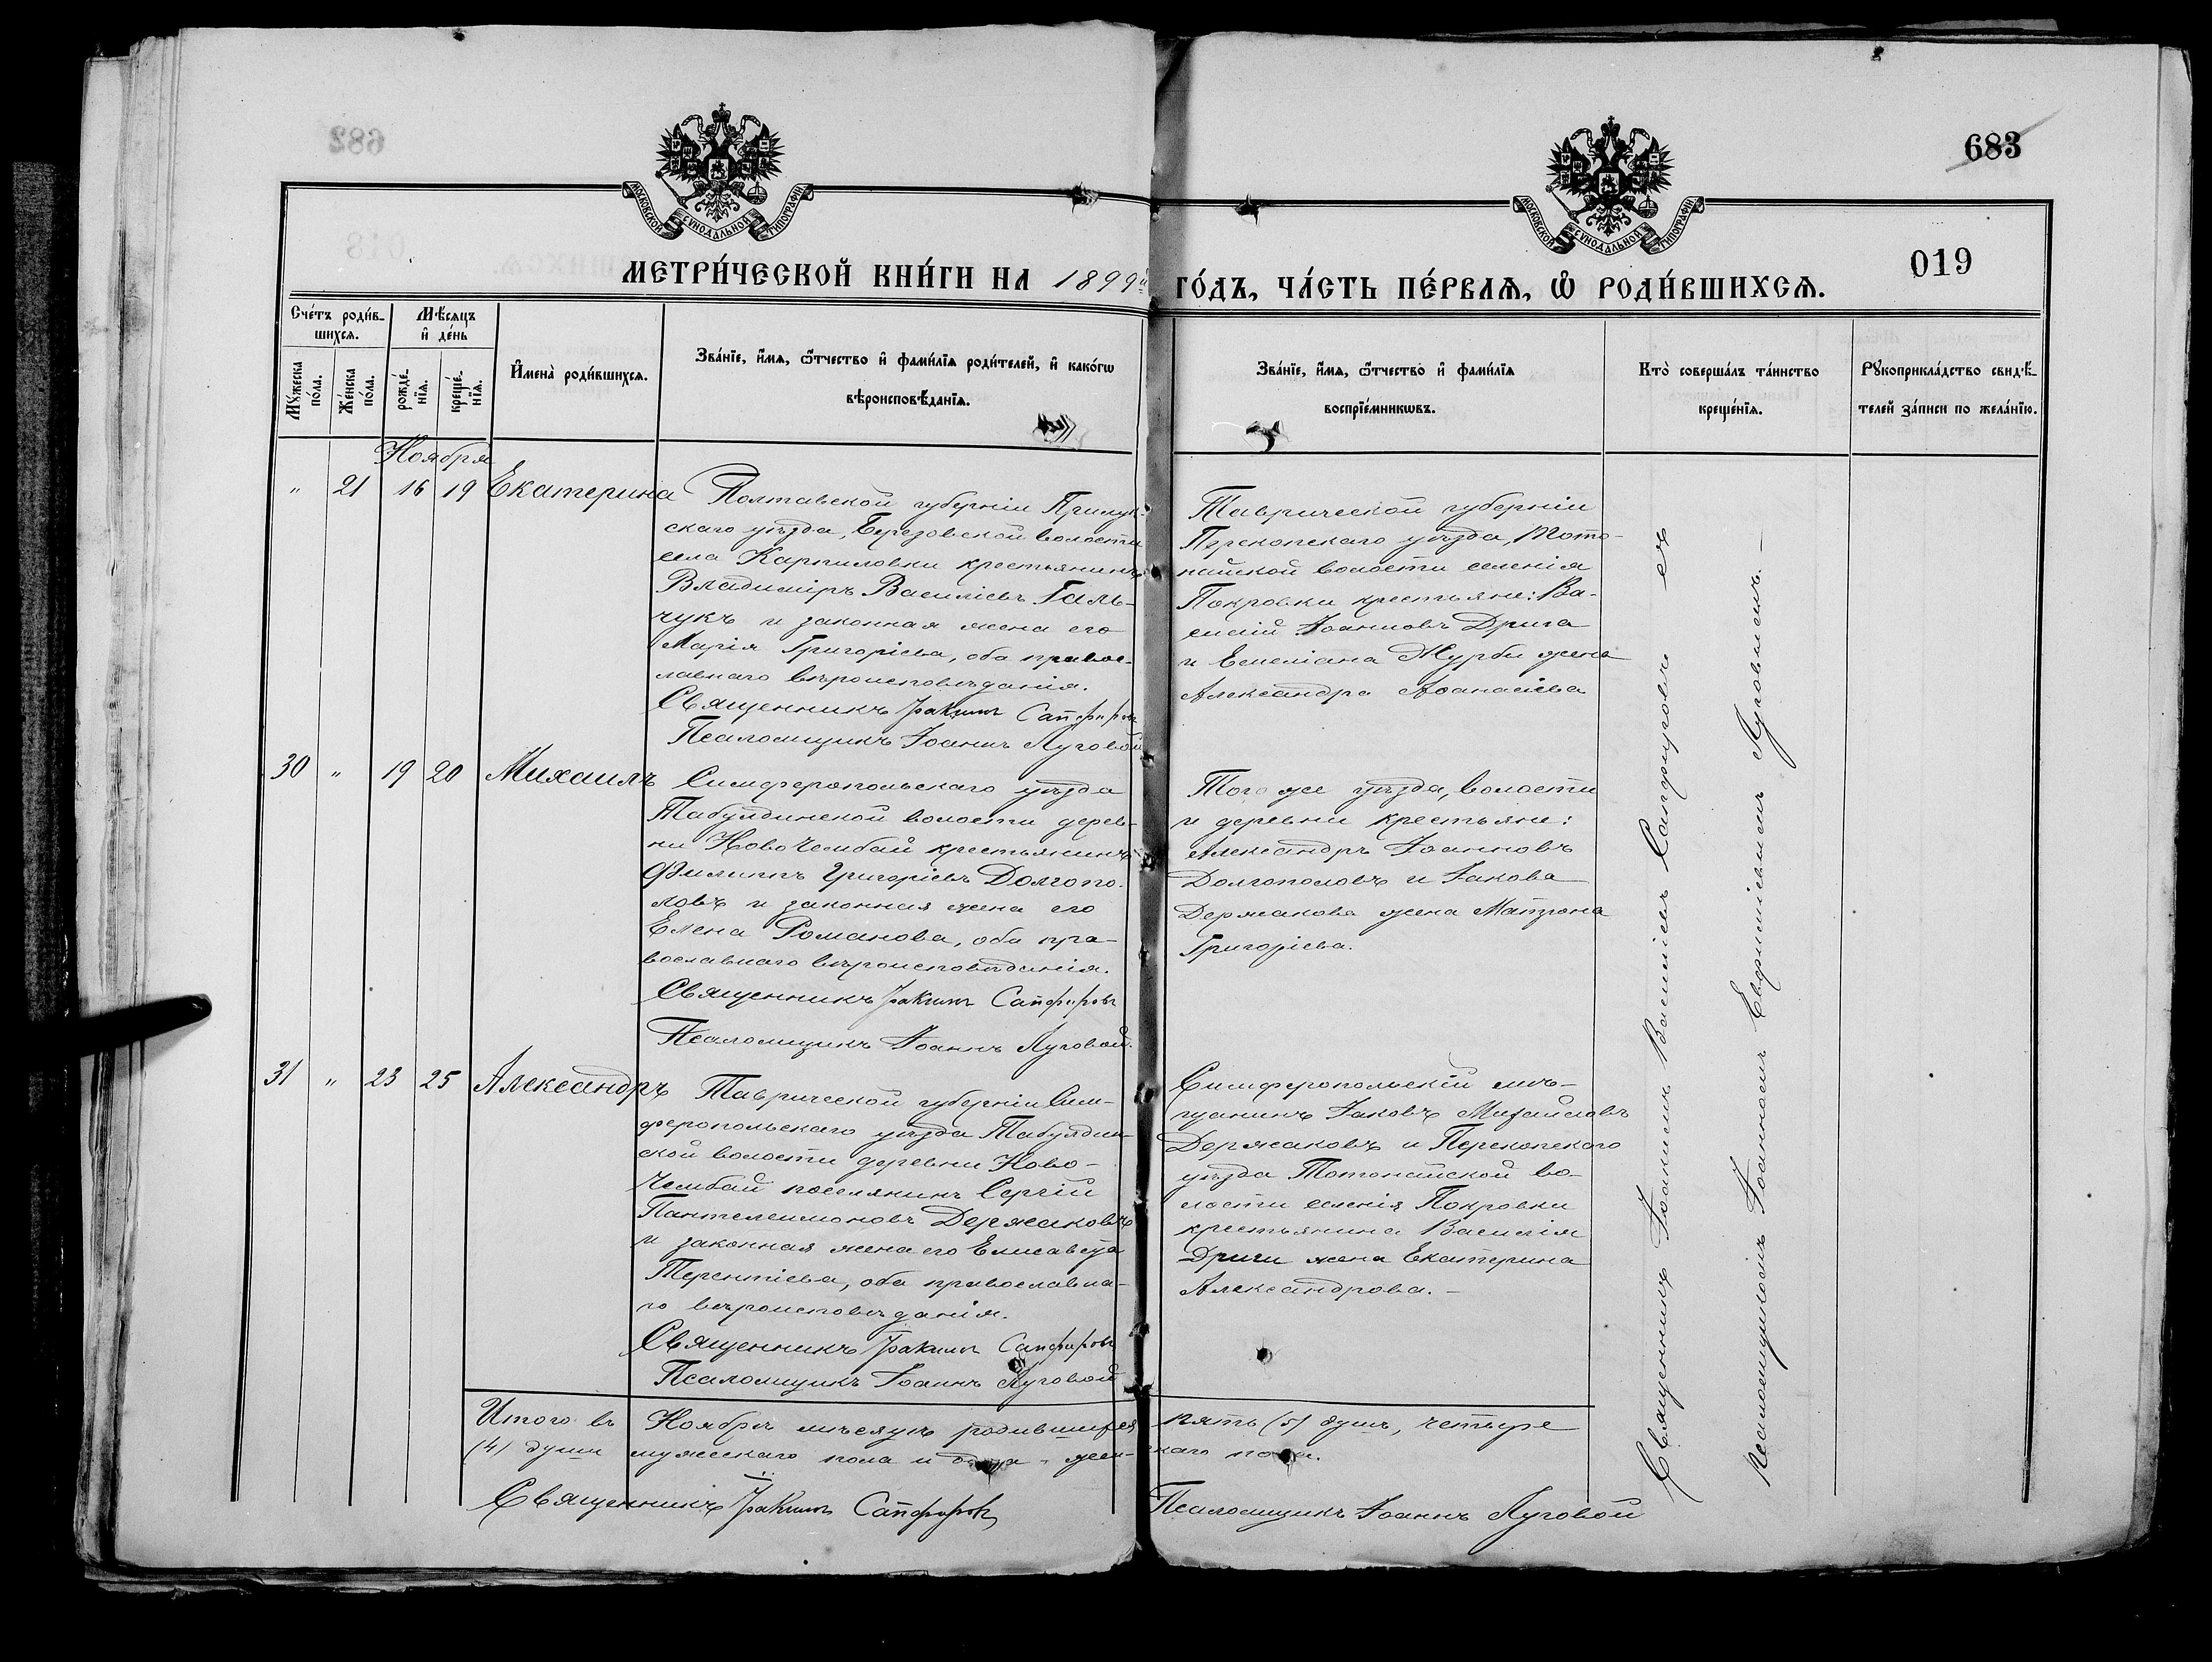 682
683
МОСКОВСКОЙ СѴНОДАЛЬНОЙ ТИПОГРАФІИ
МОСКОВСКОЙ СѴНОДАЛЬНОЙ ТИПОГРАФІИ
018
019
МЕТРИ́ЧЕСКОЙ КНИ́ГИ НА 1899й ГО́ДЪ, ЧА́СТЬ ПЕ́РВАѦ, Ѡ РОДИ́ВШИХСѦ.
Сче́тъ роди́в-
шихсѧ.
Мѣ́сѧцъ
и҆ де́нь
Мꙋ́жеска
по́ла.
Же́нска
по́ла.
рожде́-
нїѧ.
креще́-
нїѧ.
И҆мена̀ роди́вшихсѧ.
Зва́нїе, и҆́мѧ, ѻ҆́тчество и҆ фами́лїѧ роди́телей, и҆ како́гѡ
вѣроисповѣ́данїѧ.
Зва́нїе, и҆́мѧ, ѻ҆́тчество и҆ фами́лїѧ
воспрїе́мникѡвъ.
Кто̀ соверша́лъ та́инство
креще́нїѧ.
Рꙋкоприкла́дство свидѣ́-
телей за́писи по жела́нїю.
Ноября
" 21 16 19 Екатерина
Полтавской губерніи Прилук-
скаго уѣзда, Березовской волости
села Карпиловки крестьянинъ
Владиміръ Василіевъ Галь-
чукъ и законная жена его
Марія Григоріева, оба правос-
лавнаго вѣроисповѣданія.
Священникъ Іоакимъ Сапфировъ
Псаломщикъ Іоаннъ Луговой
Таврической губерніи
Перекопскаго уѣзда, Тото-
найской волости селенія
Покровки крестьяне: Ва-
силій Іоанновъ Дрига
и Емеліана Журбы жена
Александра Аѳанасіева
30 " 19 20 Михаилъ
Симферопольскаго уѣзда
Табулдинской волости дерев-
ни Ново Чембай крестьянинъ
Филиппъ Григоріевъ Долгопо-
ловъ и законная жена его
Елена Романова, оба пра-
вославнаго вѣроисповѣданія.
Священникъ Іоакимъ Сапфировъ
Псаломщикъ Іоаннъ Луговой.
Того же уѣзда, волости
и деревни крестьяне:
Александръ Іоанновъ
Долгополовъ и Іакова
Держакова жена Матрона
Григоріева.
31 " 23 25 Александръ
Таврической губерніи Сим-
феропольскаго уѣзда Табулдин-
ской волости деревни Ново-
Чембай поселянинъ Сергій
Пантелеимоновъ Держаковъ
и законная жена его Елисавета
Терентіева, оба православна-
го вѣроисповѣданія.
Священникъ Іоакимъ Сапфировъ
Псаломщикъ Іоаннъ Луговой
Симферопольскій мѣ-
щанинъ Іаковъ Михайловъ
Держаковъ и Перекопскаго
уѣзда Тотонайской во-
лости селенія Покровки
крестьянина Василія
Дриги жена Екатерина
Александрова. -
Священникъ Іоакимъ Василіевъ Сапфировъ съ
псаломщикомъ Іоанномъ Евфиміевымъ Луговымъ. -
Итого въ Ноябрѣ мѣсяцѣ родившихся пять (5) душъ, четыре
(4) души мужескаго пола и одна женскаго пола.
Священникъ Іоакимъ Сапфировъ
Псаломщикъ Іоаннъ Луговой